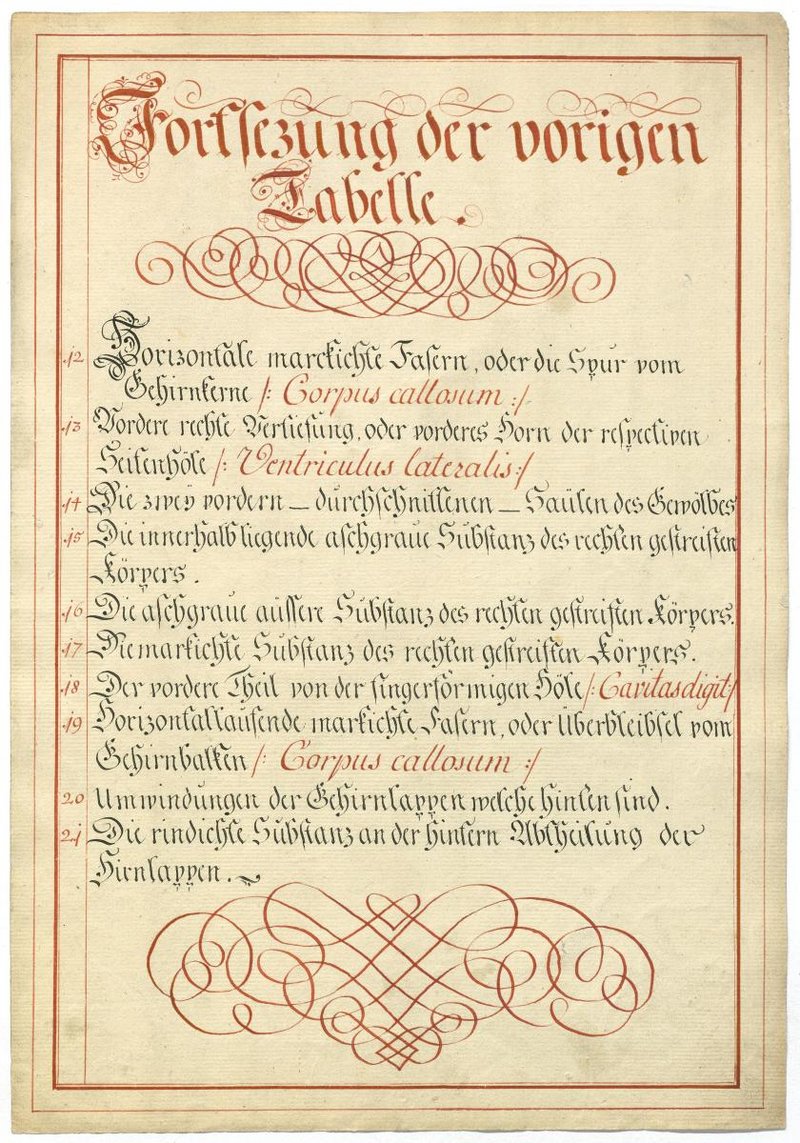 Fortsezung der vorigen
Tabelle.
12 Horizontale marckichte Fasern, oder die Spur vom
Gehirnkerne /: Corpus callosum :/
13 Vordere rechte Vertiefung, oder vorderes Horn der respectiven
Seitenhöle /: Ventriculus lateralis :/
14 Die zwey vordern – durchschnittenen – Säulen des Gewölbes
15 Die innerhalb liegende aschgraue Substanz des rechten gestreiften
Körpers.
16 Die aschgraue äussere Substanz des rechten gestreiften Körpers.
17 Die markichte Substanz des rechten gestreiften Körpers.
18 Der vordere Theil von der fingerförmigen Höle /: Cavitas digit :/
19 Horizontallaufende markichte Fasern, oder Überbleibsel vom
Gehirnbalken /: Corpus callosum :/
20 Umwindungen der Gehirnlappen welche hinten sind.
21 Die rindichte Substanz an der hintern Abtheilung der
Hirnlappen.